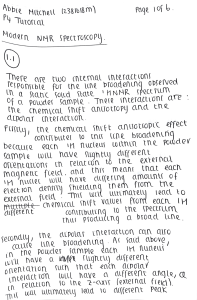 Abbie Mitchell
Page 1 of 6.
P4 Tutorial
Modern NMR Spectroscopy.
1.1
There are two internal interactions
responsible for the line broadening observed
in a static solid state ¹H NMR spectrum
of a powder sample. These interactions are:
the chemical shift anisotropy and the
dipolar interaction.
Firstly, the chemical shift anisotropic effect
contributes to this line broadening
because each ¹H nucleus within the powder
sample will have slightly different
orientations in relation to the external
magnetic field, and this means that each
¹H nuclei will have differing amounts of
electron density shielding them from the
external field. This will ultimately lead to
different chemical shift values from each ¹H
contributing to the spectrum,
thus producing a broad line.
Secondly, the dipolar interaction can also
cause line broadening. As said above,
in the powder sample each ¹H nucleus
will have a slightly different
orientation such that each dipolar
interaction will have a different angle, θ
in relation to the z-axis (external field).
This will ultimately lead to different peak